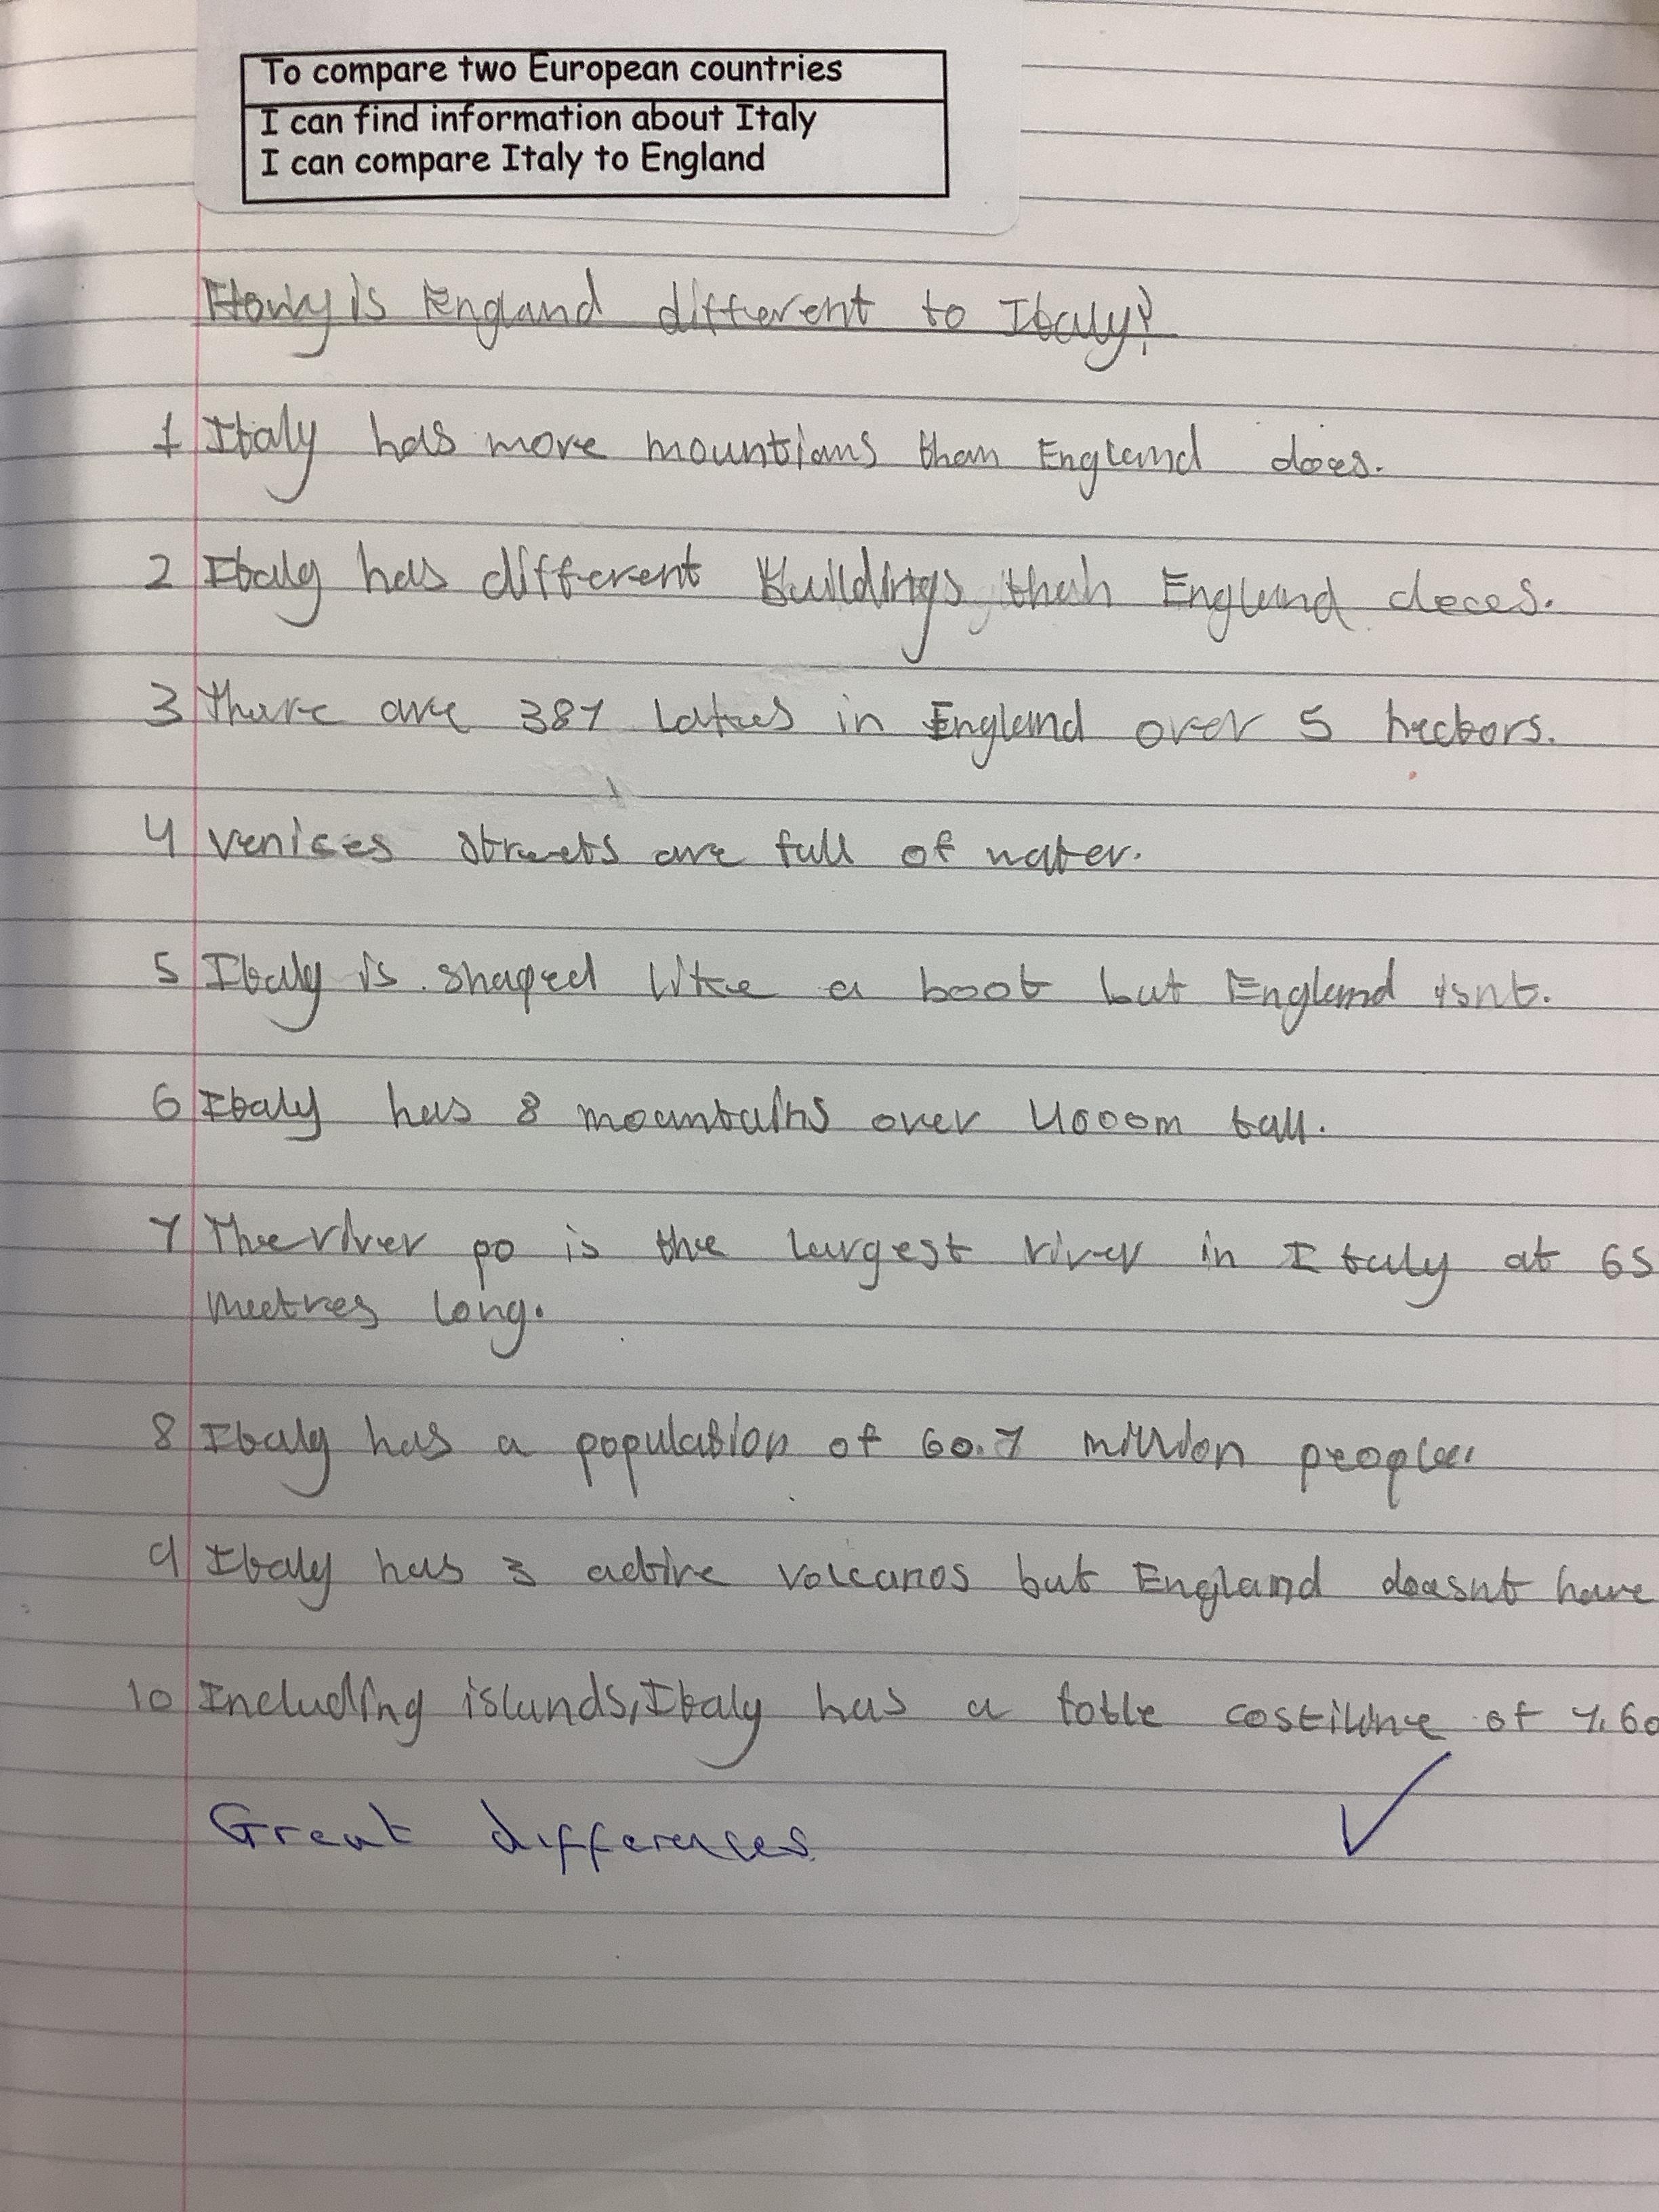 To compare two European countries
I can find information about Italy
I can compare Italy to England
is England different to Italy?
1 Italy has more mountians than England does.
2 Italy has different Buildings than England doees.
3 there are 387 lakes in England over 5 hectors.
4 venices streets are full of water.
5 Italy is shaped like a boot but England isnt.
6 Italy has 8 mountains over 4000m tall.
7 The river po is the largest river in Italy at 65
metres long.
8 Italy has a population of 60.7 million people.
9 Italy has 3 active volcanos but England doesnt have
10 Including islands, Italy has a totle of 7.60
Great differences